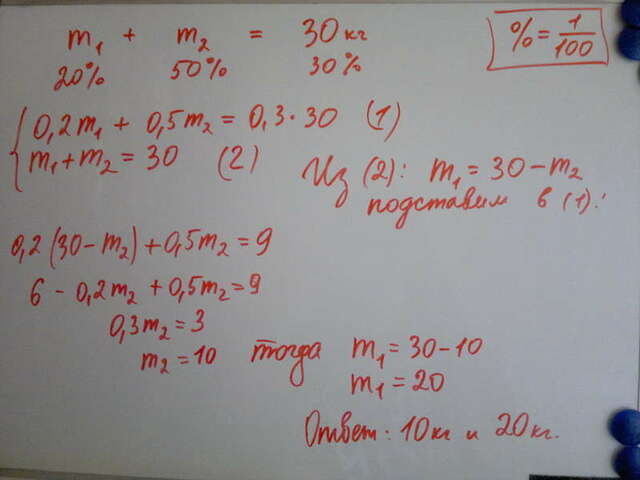 m₁ + m₂ = 30 кг
20% 50% 30%
% = 1/100
{ 0,2m₁ + 0,5m₂ = 0,3·30 (1)
m₁+m₂ = 30 (2)
Из (2): m₁ = 30 – m₂
подставим в (1):
0,2(30 – m₂) + 0,5m₂ = 9
6 – 0,2m₂ + 0,5m₂ = 9
0,3m₂ = 3
m₂ = 10 тогда m₁ = 30 – 10
m₁ = 20
Ответ: 10 кг и 20 кг.